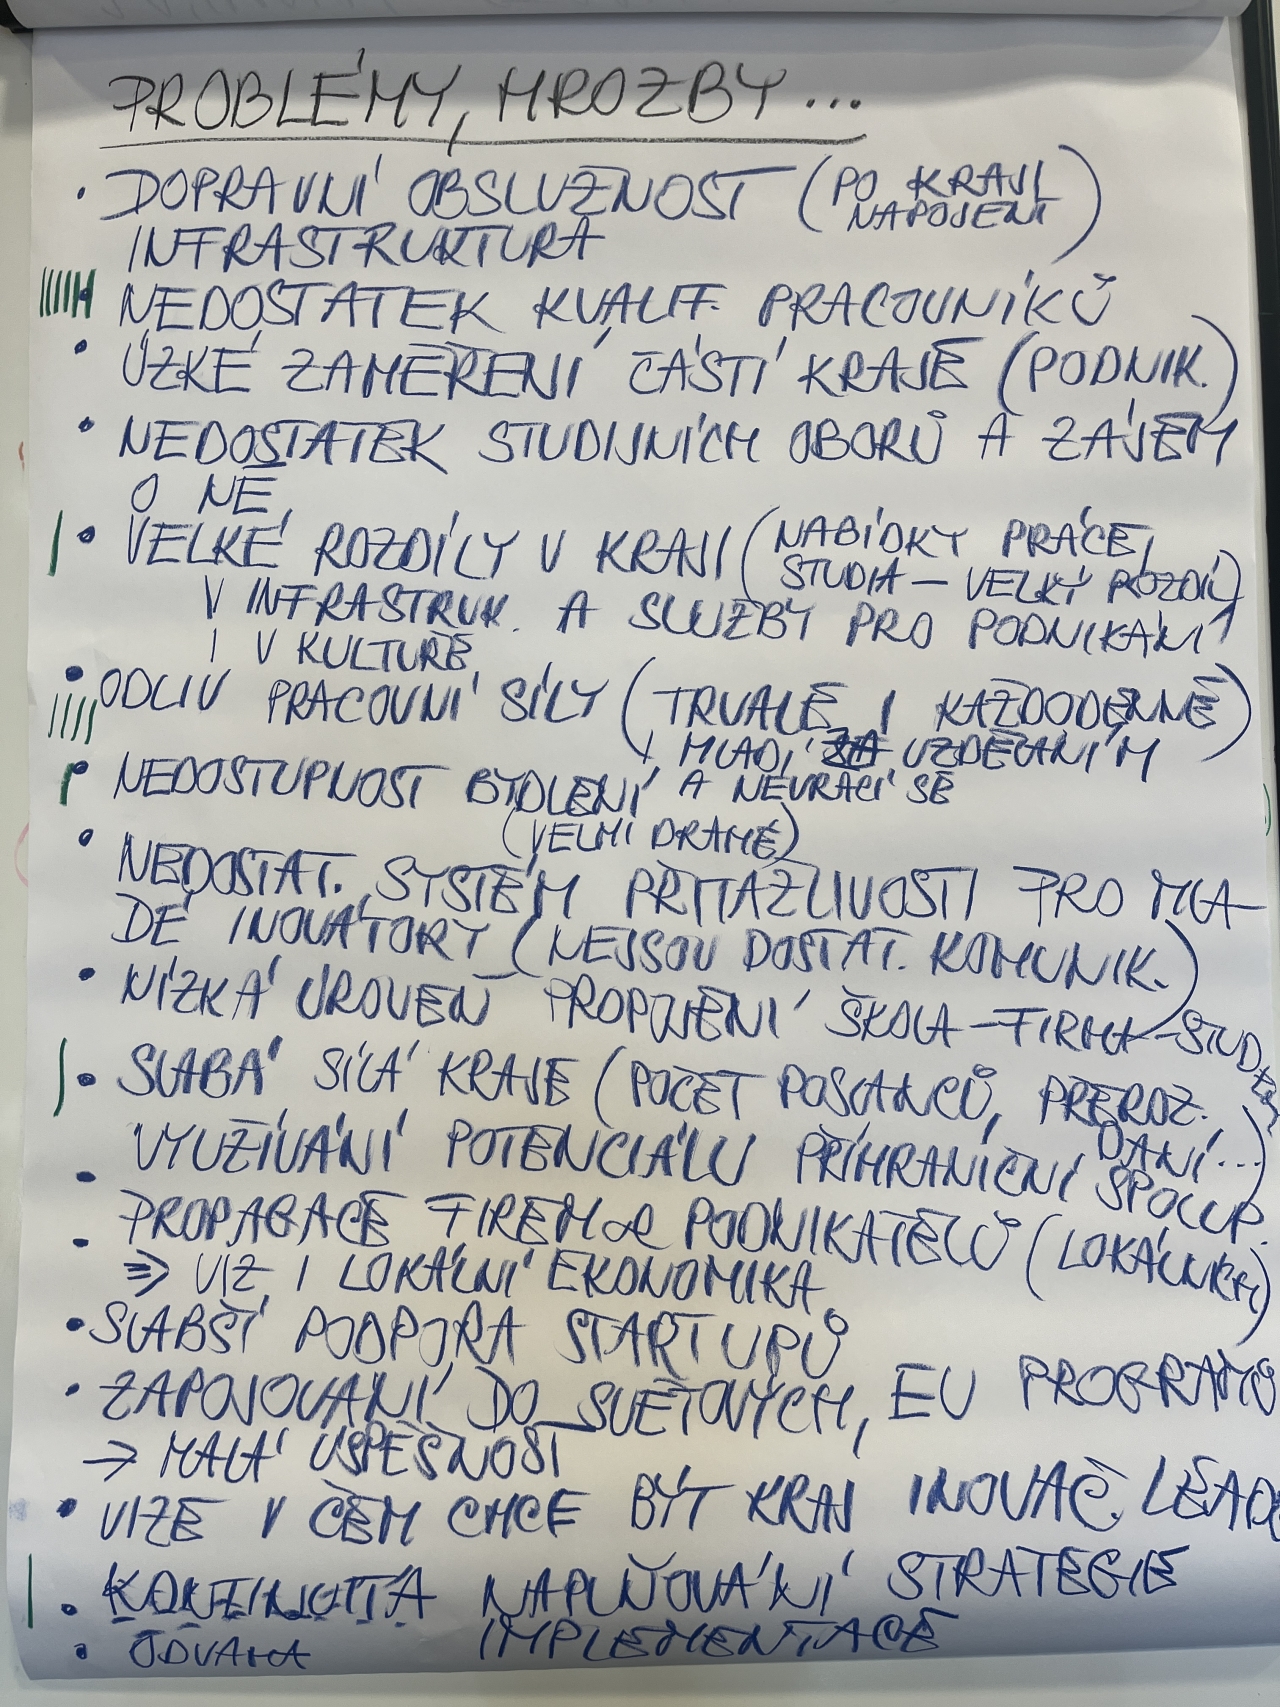 PROBLÉMY, HROZBY...
• DOPRAVNÍ OBSLUŽNOST (PO KRAJI
NAPOJENÍ)
INFRASTRUKTURA
• NEDOSTATEK KVALIF. PRACOVNÍKŮ
• ÚZKÉ ZAMĚŘENÍ ČÁSTÍ KRAJE (PODNIK.)
• NEDOSTATEK STUDIJNÍCH OBORŮ A ZÁJEM
O NĚ
• VELKÉ ROZDÍLY V KRAJI (NABÍDKY PRÁCE,
STUDIA – VELKÝ ROZDÍL)
V INFRASTRUK. A SLUŽBY PRO PODNIKÁNÍ
I V KULTUŘE
• ODLIV PRACOVNÍ SÍLY (TRVALE I KAŽDODENNĚ)
I MLADÍ ZA VZDĚLÁNÍM
A NEVRACÍ SE
• NEDOSTUPNOST BYDLENÍ
(VELMI DRAHÉ)
• NEDOSTAT. SYSTÉM PŘITAŽLIVOSTI PRO MLA-
DÉ INOVÁTORY (NEJSOU DOSTAT. KOMUNIK.)
• NÍZKÁ ÚROVEŇ PROPOJENÍ ŠKOLA – FIRMA – STUDENT
• SLABÁ SÍLA KRAJE (POČET POSLANCŮ, PŘEROZ.
DANÍ...)
• VYUŽÍVÁNÍ POTENCIÁLU PŘÍHRANIČNÍ SPOLUP.
• PROPAGACE FIREM a PODNIKATELŮ (LOKÁLNÍCH)
⇒ VIZ I LOKÁLNÍ EKONOMIKA
• SLABŠÍ PODPORA STARTUPŮ
• ZAPOJOVÁNÍ DO SVĚTOVÝCH, EU PROGRAMŮ
→ MALÁ ÚSPĚŠNOST
• VIZE V ČEM CHCE BÝT KRAJ INOVAČ. LEAD
• KONTINUITA NAPLŇOVÁNÍ STRATEGIE
IMPLEMENTACE
• ODVAHA